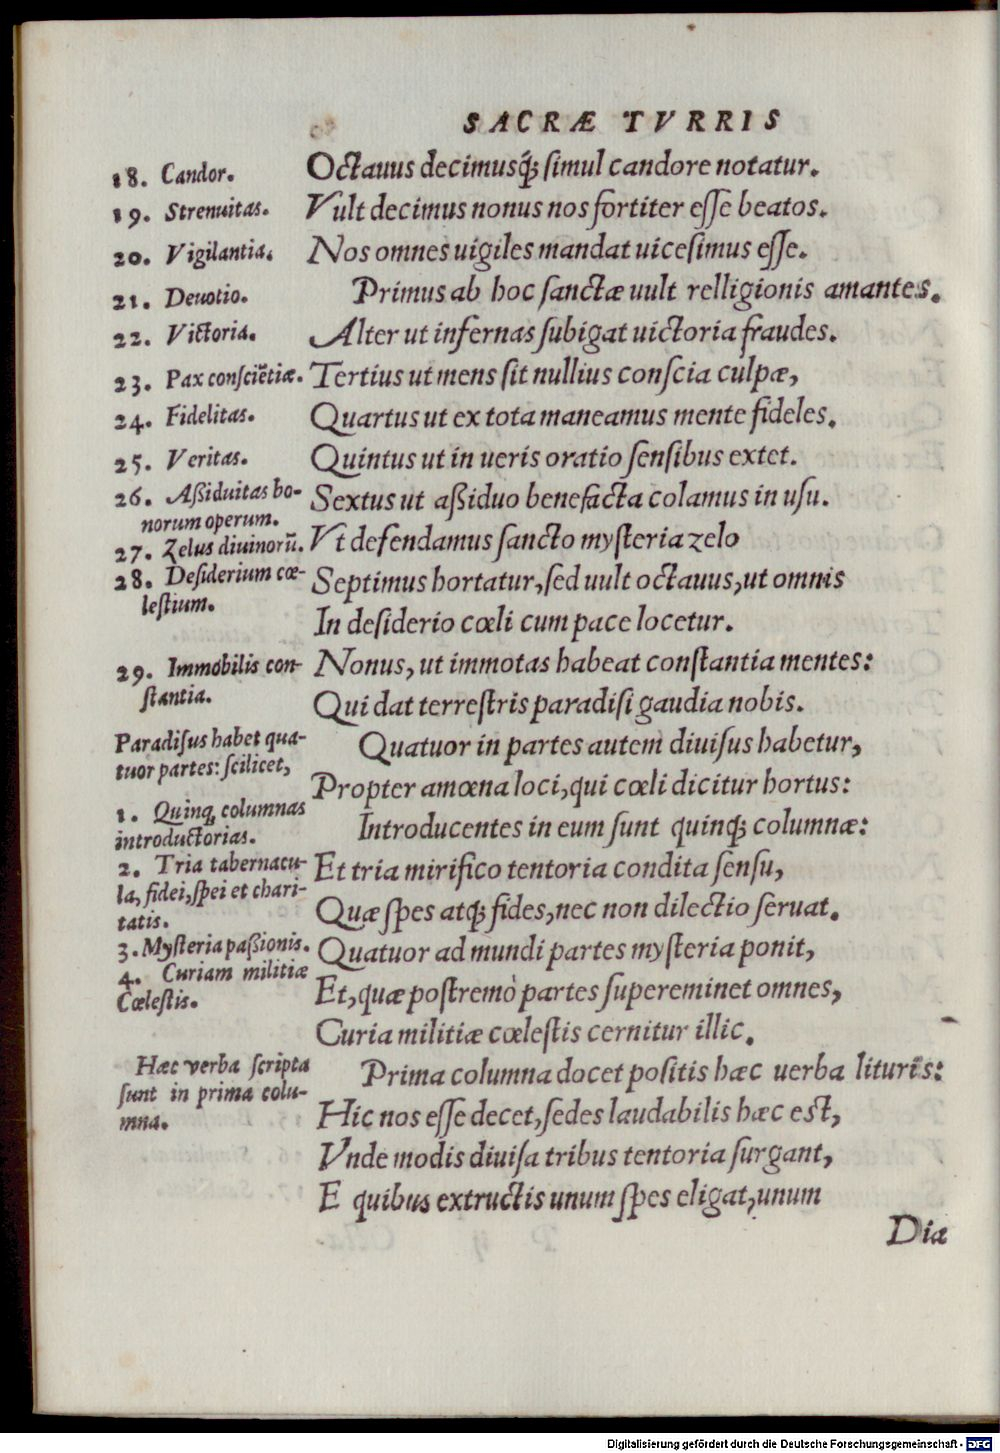 SACRÆ TVRRIS
18. Candor.
Octauus decimusq́; ſimul candore notatur.
19. Strenuitas.
Vult decimus nonus nos fortiter eſſe beatos.
20. Vigilantia.
Nos omnes uigiles mandat uiceſimus eſſe.
21. Deuotio.
Primus ab hoc ſanctæ uult relligionis amantes.
22. Victoria.
Alter ut infernas ſubigat uictoria fraudes.
23. Pax conſciētiæ.
Tertius ut mens ſit nullius conſcia culpæ,
24. Fidelitas.
Quartus ut ex tota maneamus mente fideles.
25. Veritas.
Quintus ut in ueris oratio ſenſibus extet.
26. Aßiduitas bo-
norum operum.
Sextus ut aßiduo benefacta colamus in uſu.
27. Zelus diuinorū.
Vt defendamus ſancto myſteria zelo
28. Deſiderium cœ-
leſtium.
Septimus hortatur, ſed uult octauus, ut omnis
In deſiderio cœli cum pace locetur.
29. Immobilis con-
ſtantia.
Nonus, ut immotas habeat conſtantia mentes:
Qui dat terreſtris paradiſi gaudia nobis.
Paradiſus habet qua-
tuor partes: ſcilicet,
Quatuor in partes autem diuiſus habetur,
Propter amœna loci, qui cœli dicitur hortus:
1. Quinq; columnas
introductorias.
Introducentes in eum ſunt quinq́; columnæ:
2. Tria tabernacu-
la, fidei, ſpei et chari-
tatis.
Et tria mirifico tentoria condita ſenſu,
Quæ ſpes atq́; fides, nec non dilectio ſeruat.
3. Myſteria paßionis.
Quatuor ad mundi partes myſteria ponit,
4. Curiam militiæ
Cœleſtis.
Et, quæ poſtremò partes ſupereminet omnes,
Curia militiæ cœleſtis cernitur illic.
Hæc verba ſcripta
ſunt in prima colu-
mna.
Prima columna docet poſitis hæc uerba lituris:
Hic nos eſſe decet, ſedes laudabilis hæc eſt,
Vnde modis diuiſa tribus tentoria ſurgant,
E quibus extructis unum ſpes eligat, unum
Dia
Digitalisierung gefördert durch die Deutsche Forschungsgemeinschaft - DFG